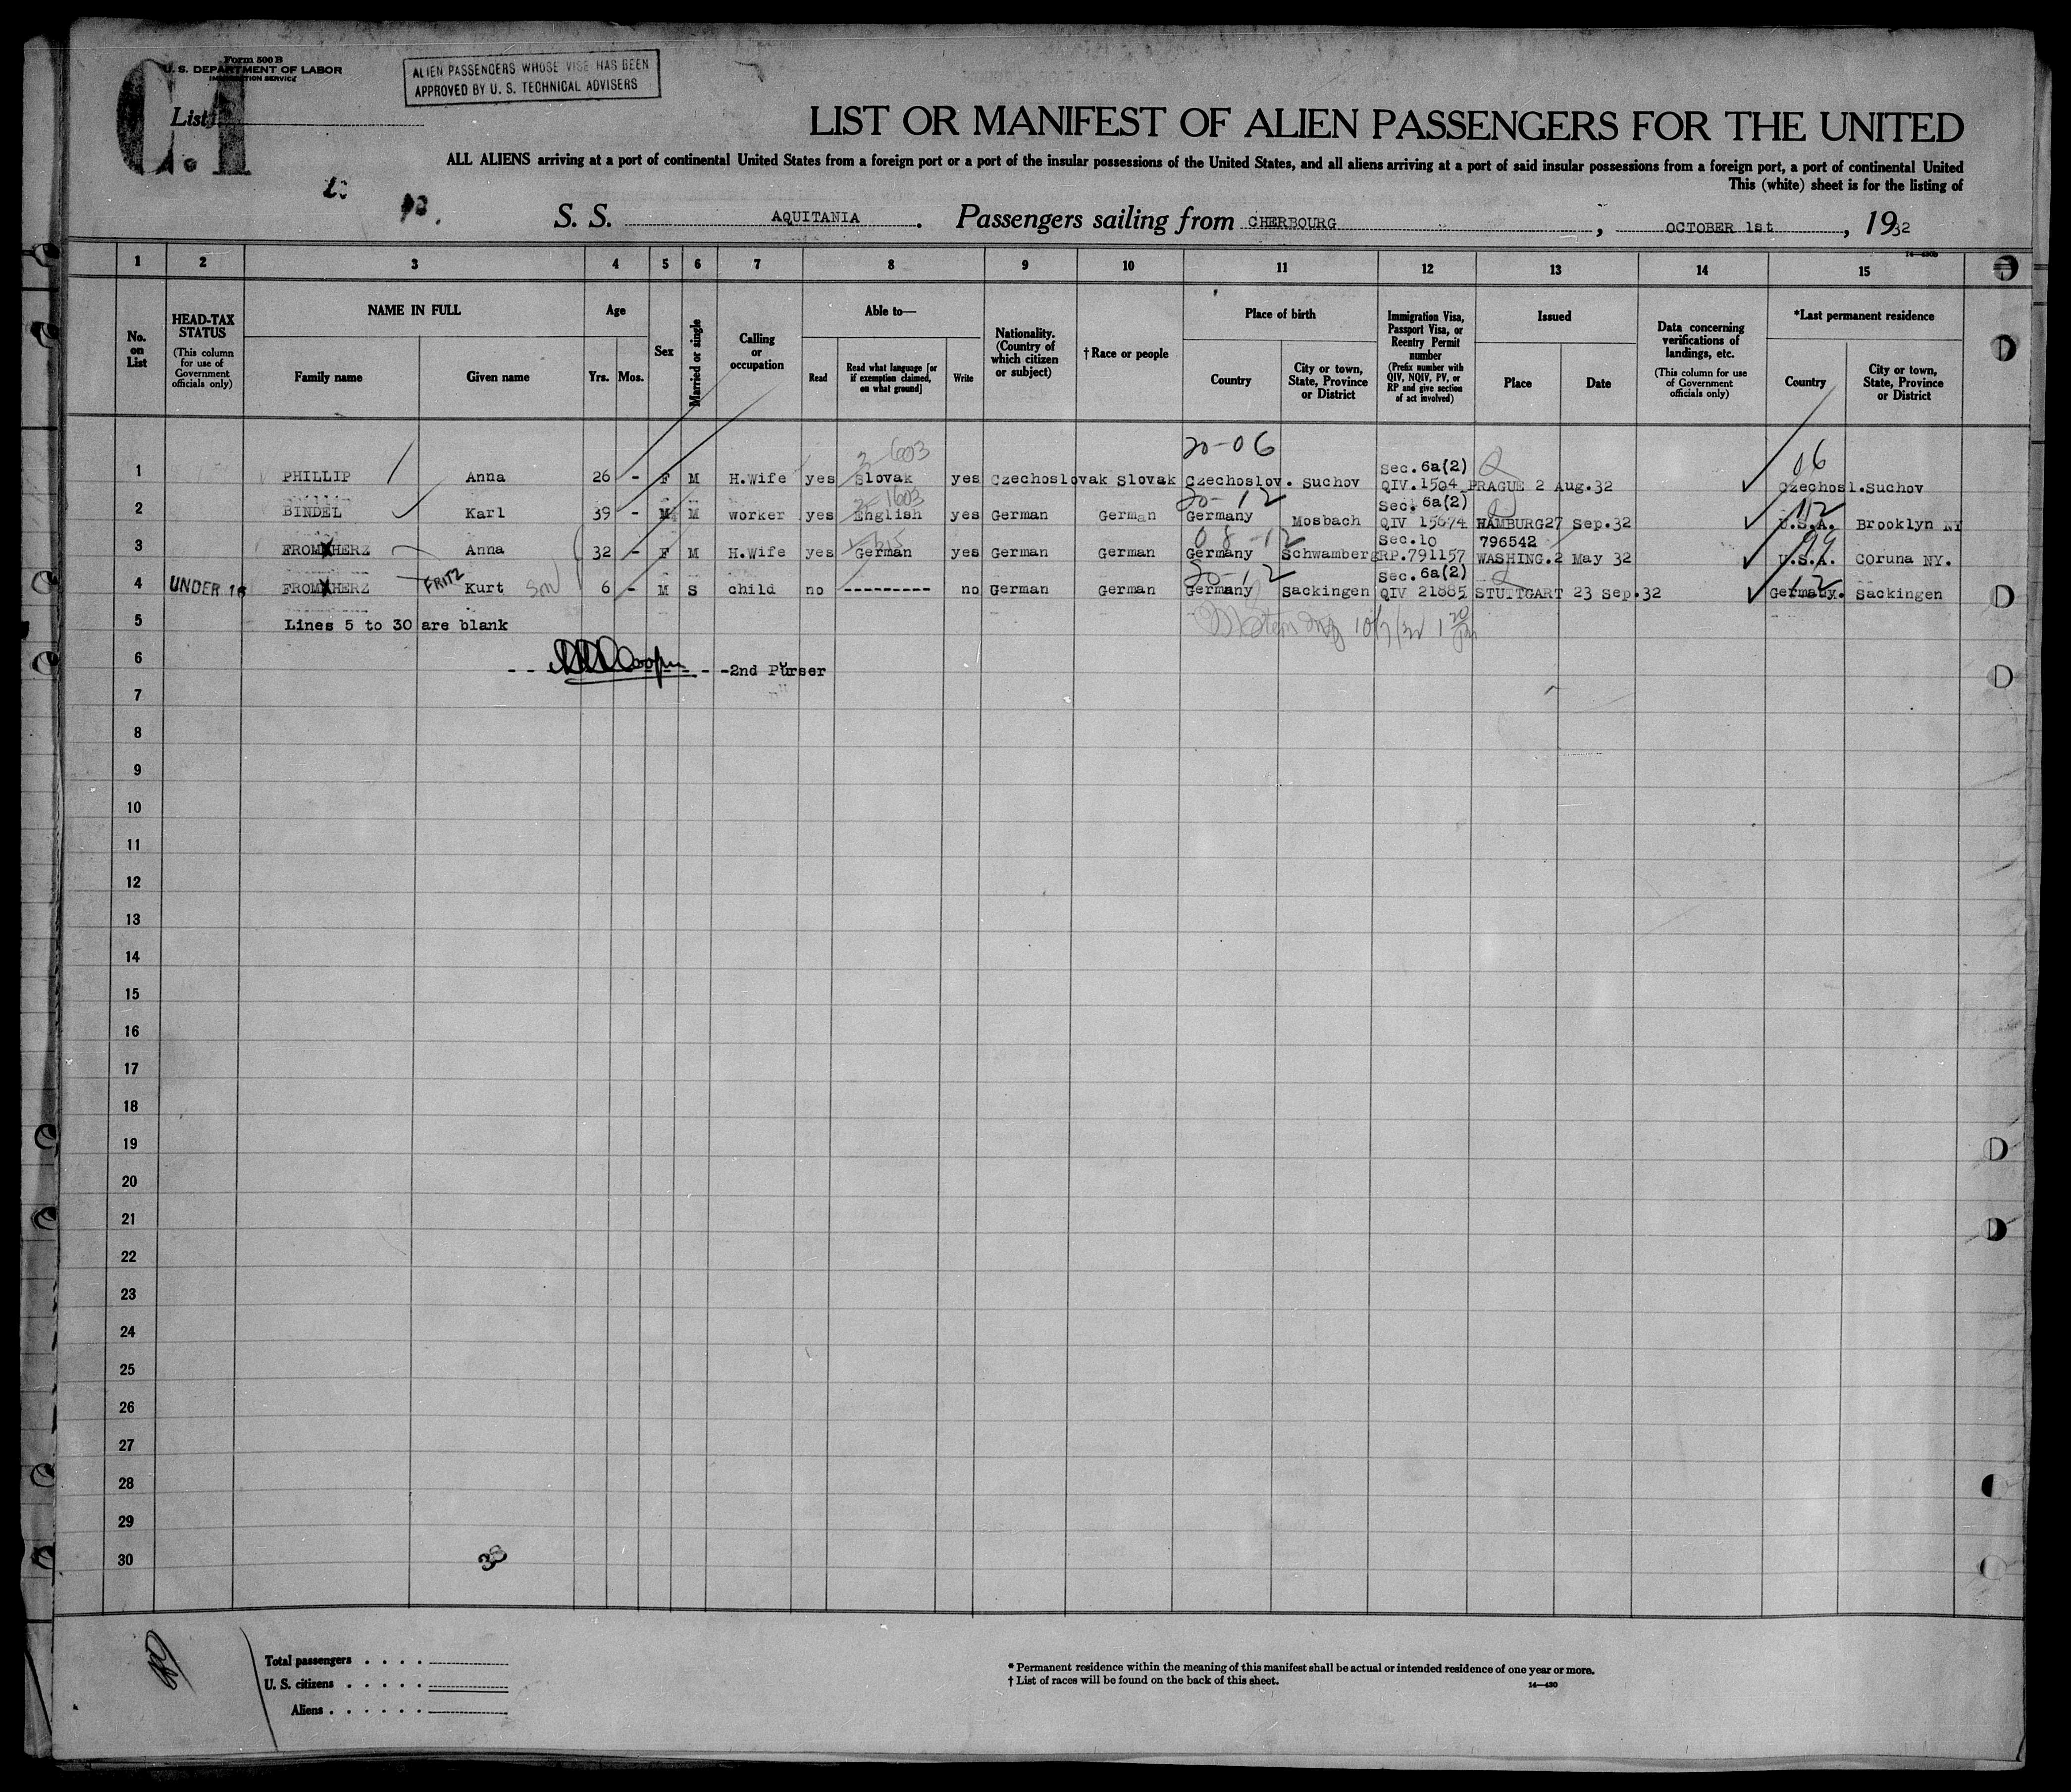 Form 500 B
U. S. DEPARTMENT OF LABOR
IMMIGRATION SERVICE
ALIEN PASSENGERS WHOSE VISE HAS BEEN
APPROVED BY U. S. TECHNICAL ADVISERS
List
LIST OR MANIFEST OF ALIEN PASSENGERS FOR THE UNITED
ALL ALIENS arriving at a port of continental United States from a foreign port or a port of the insular possessions of the United States, and all aliens arriving at a port of said insular possessions from a foreign port, a port of continental United
This (white) sheet is for the listing of
S. S. AQUITANIA. Passengers sailing from CHERBOURG, OCTOBER 1st, 1932
1 2 3 4 5 6 7 8 9 10 11 12 13 14 15
No. on List
HEAD-TAX STATUS (This column for use of Government officials only)
NAME IN FULL
Family name
Given name
Age
Yrs. Mos.
Sex
Married or single
Calling or occupation
Able to—
Read
Read what language [or if exemption claimed, on what ground]
Write
Nationality. (Country of which citizen or subject)
†Race or people
Place of birth
Country
City or town, State, Province or District
Immigration Visa, Passport Visa, or Reentry Permit number (Prefix number with QIV, NQIV, PV, or RP and give section of act involved)
Issued
Place
Date
Data concerning verifications of landings, etc. (This column for use of Government officials only)
*Last permanent residence
Country
City or town, State, Province or District
20-06
Sec.6a(2) 06
1 PHILLIP Anna 26 - F M H.Wife yes Slovak yes Czechoslovak Slovak Czechoslov. Suchov QIV.1504 PRAGUE 2 Aug.32 Czechosl.Suchov
20-12 Sec.6a(2)
2 BINDEL Karl 39 - M M worker yes English yes German German Germany Mosbach QIV 15674 HAMBURG27 Sep.32 U.S.A. Brooklyn NY
08-12 Sec.10 796542 99
3 FROMXHERZ Anna 32 - F M H.Wife yes German yes German German Germany Schwamberg RP.791157 WASHING.2 May 32 U.S.A. Coruna NY.
20-12 Sec.6a(2) 12
4 UNDER 16 FROMXHERZ FRITZ Kurt Son 6 - M S child no --------- no German German Germany Sackingen QIV 21885 STUTTGART 23 Sep.32 Germany. Sackingen
5 Lines 5 to 30 are blank
6 Cooper -2nd Purser
7
8
9
10
11
12
13
14
15
16
17
18
19
20
21
22
23
24
25
26
27
28
29
30
Total passengers . . . .
U. S. citizens . . . . .
Aliens . . . . . .
* Permanent residence within the meaning of this manifest shall be actual or intended residence of one year or more.
† List of races will be found on the back of this sheet.
14—430